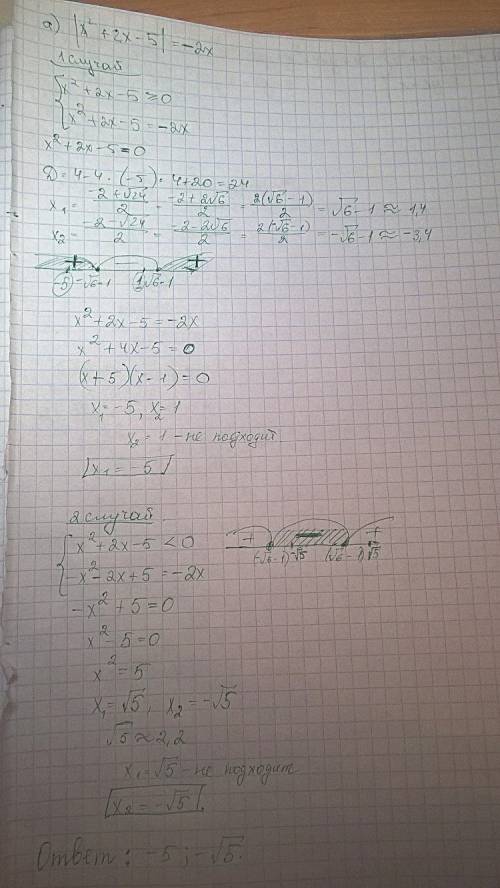 а) |x² + 2x - 5| = -2x
1 случай
{ x² + 2x - 5 ≥ 0
{ x² + 2x - 5 = -2x
x² + 2x - 5 = 0
D = 4 - 4 · (-5) = 4 + 20 = 24
x₁ = (-2 + √24)/2 = (-2 + 2√6)/2 = 2(√6 - 1)/2 = √6 - 1 ≈ 1,4
x₂ = (-2 - √24)/2 = (-2 - 2√6)/2 = 2(-√6 - 1)/2 = -√6 - 1 ≈ -3,4
+ - +
-5 -√6-1 1 √6-1
x² + 2x - 5 = -2x
x² + 4x - 5 = 0
(x + 5)(x - 1) = 0
x₁ = -5, x₂ = 1
x₂ = 1 - не подходит
x₁ = -5
2 случай
{ x² + 2x - 5 < 0
{ -x² - 2x + 5 = -2x
+ - +
(-√6-1) -√5 (√6-1) √5
-x² + 5 = 0
x² - 5 = 0
x² = 5
x₁ = √5, x₂ = -√5
√5 ≈ 2,2
x₁ = √5 - не подходит
x₂ = -√5
Ответ: -5; -√5.